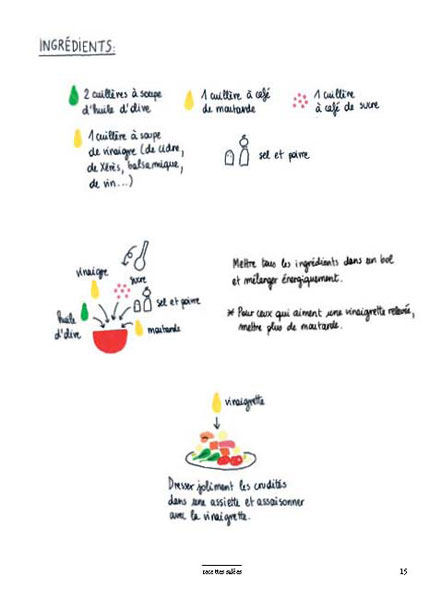 INGRÉDIENTS:
2 cuillères à soupe
d'huile d'olive
1 cuillère à café
de moutarde
1 cuillère
à café de sucre
1 cuillère à soupe
de vinaigre (de cidre,
de Xérès, balsamique,
de vin...)
sel et poivre
vinaigre
sucre
sel et poivre
huile
d'olive
moutarde
Mettre tous les ingrédients dans un bol
et mélanger énergiquement.
* Pour ceux qui aiment une vinaigrette relevée,
mettre plus de moutarde.
vinaigrette
Dresser joliment les crudités
dans une assiette et assaisonner
avec la vinaigrette.
recettes salées
15